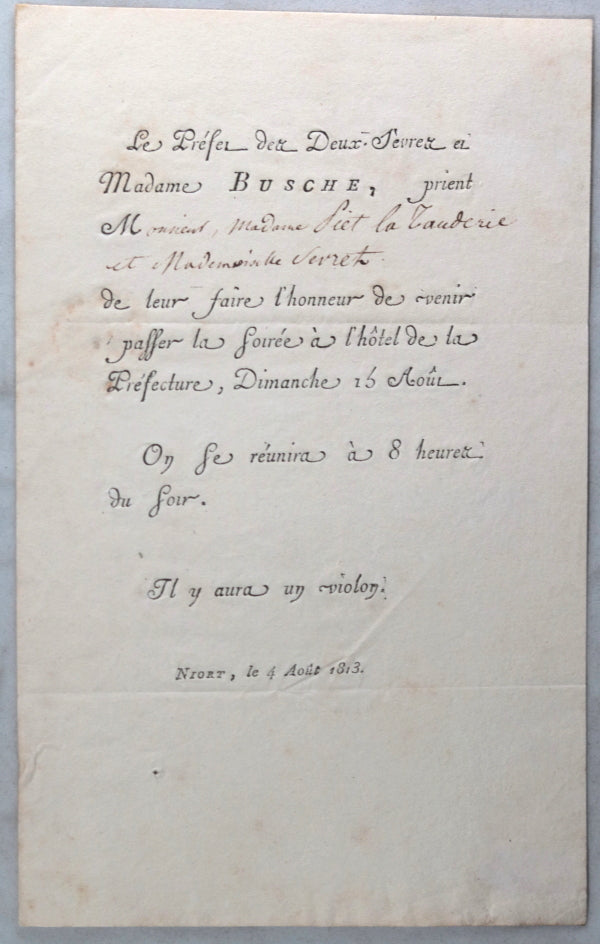 Le Préfet des Deux-Sevres et
Madame BUSCHE, prient
Monsieur, Madame Piet la Tauderie
et Mademoiselle Servet.
de leur faire l'honneur de venir
passer la soirée à l'hôtel de la
Préfecture, Dimanche 15 Août.
On se réunira à 8 heures
du soir.
Il y aura un violon.
NIORT, le 4 Août 1813.